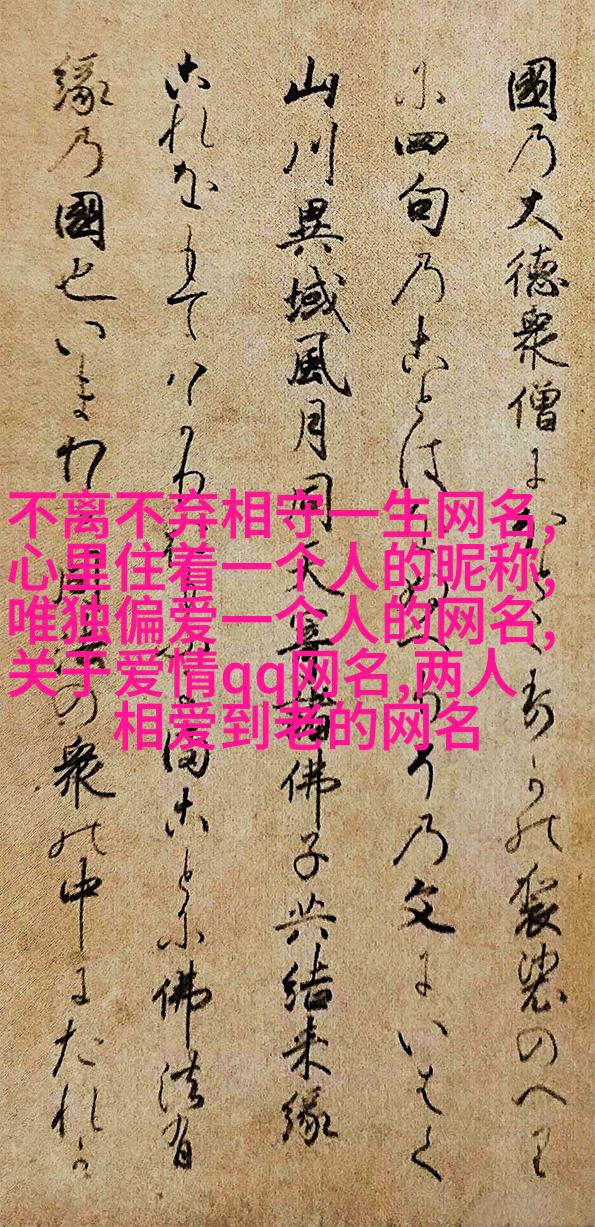 不离不弃相守一生网名,
心里住着一个人的昵称,
唯独偏爱一个人的网名,
关于爱情qq网名,两人
相爱到老的网名
國乃大徳衆僧に袈裟のへり
に四句乃ことは乃文にいはく
山川異域風月同天寄諸佛子共結来縁
これをもてはかり佛法有
縁乃國也いまの衆の中にたれか